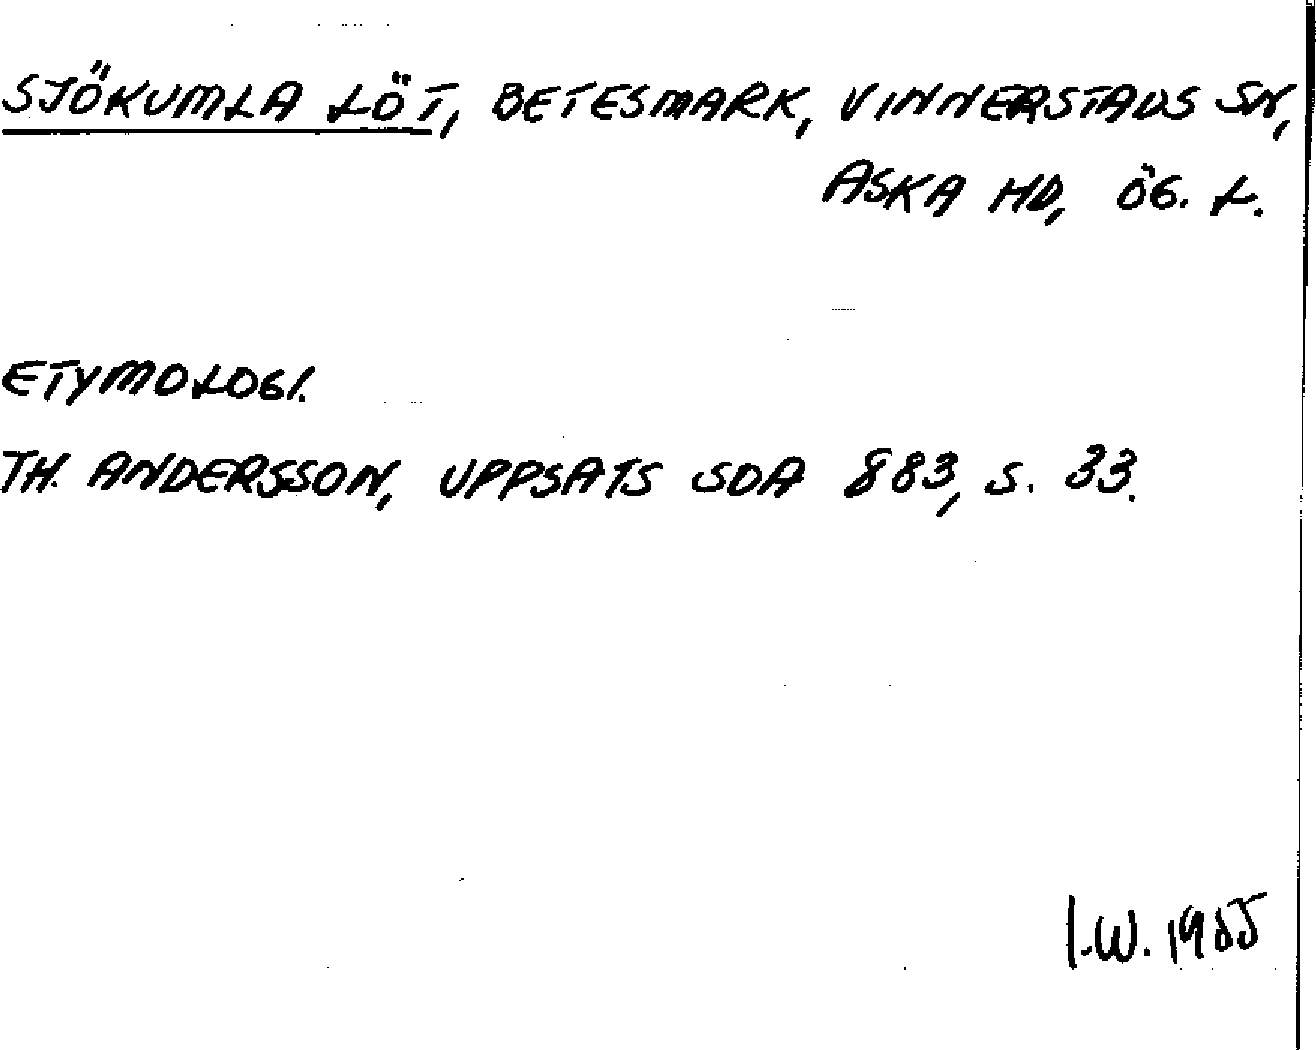 SJÖKUMLA LÖT, BETESMARK, VINNERSTADS SN,
ASKA HD, ÖG. L.
ETYMOLOGI.
TH. ANDERSSON, UPPSATS SOA 883, S. 33.
I.W. 1985